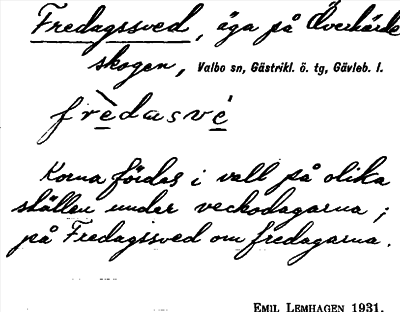 Fredagssved, äga på Överhärde
skogen, Valbo sn, Gästrikl. ö. tg, Gävleb. l.
fre̲dasvé̲
Korna fördes i vall på olika
ställen under veckodagarna;
på Fredagssved om fredagarna.
EMIL LEMHAGEN 1931.